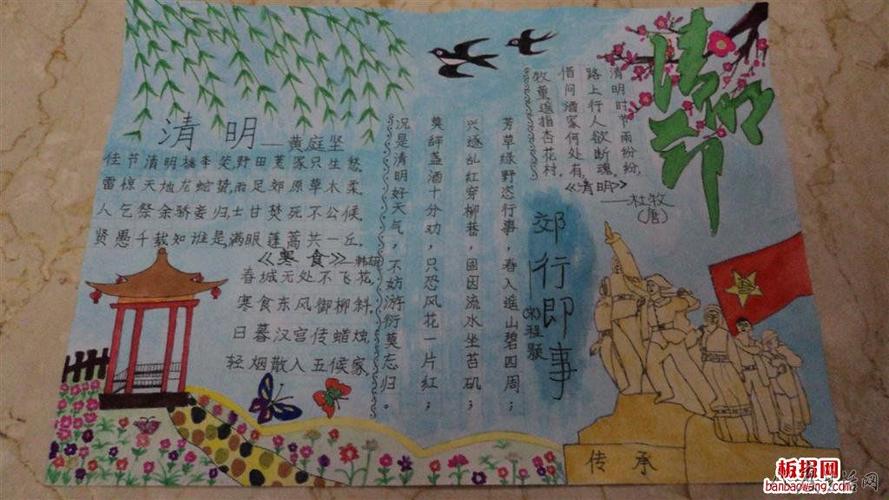 清明节
清明时节雨纷纷,
路上行人欲断魂,
借问酒家何处有,
牧童遥指杏花村。
《清明》
—杜牧
(唐)
郊行即事
(宋)程颢
芳草绿野恣行事,春入遥山碧四周;
兴逐乱红穿柳巷,固因流水坐苔矶;
莫辞盏酒十分劝,只恐风花一片红;
况是清明好天气,不妨游衍莫忘归。
清明—黄庭坚
佳节清明桃李笑,野田荒冢只生愁。
雷惊天地龙蛇蛰,雨足郊原草木柔。
人乞祭余骄妾归,士甘焚死不公候。
贤愚千载知谁是,满眼蓬蒿共一丘。
《寒食》—韩翃
春城无处不飞花,
寒食东风御柳斜。
日暮汉宫传蜡烛,
轻烟散入五候家。
传承
板报网
banbaowang.com